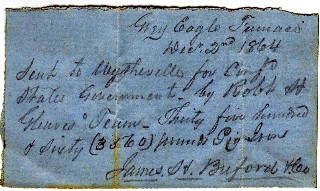 Grey Eagle Furnace
Decr 2nd 1864
Sent to Wytheville for Confd
States Government by Robt H
Gleaves' Team - Thirty five hundred
& Sixty (3560) pounds Pig Iron
James H. Buford & Co